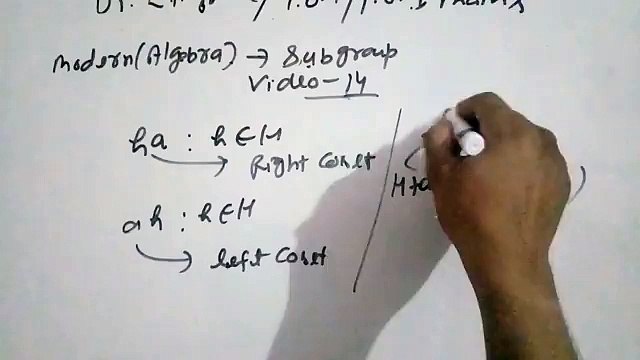 modern(Algebra) → Subgroup
Video-14
ha : h∈H
Right Coset
ah : h∈H
left Coset
H+a